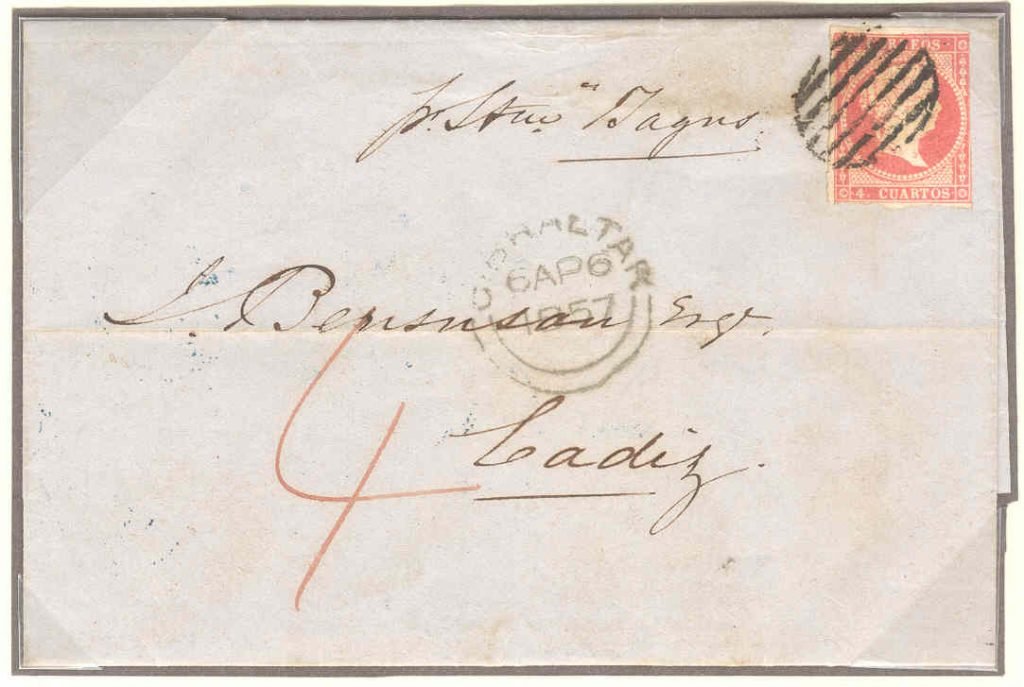 CORREOS
pr. Stmr "Tagus
4. CUARTOS
GIBRALTAR
6AP6
1857
J. S. Bensusan Esqr.
4
Cadiz.